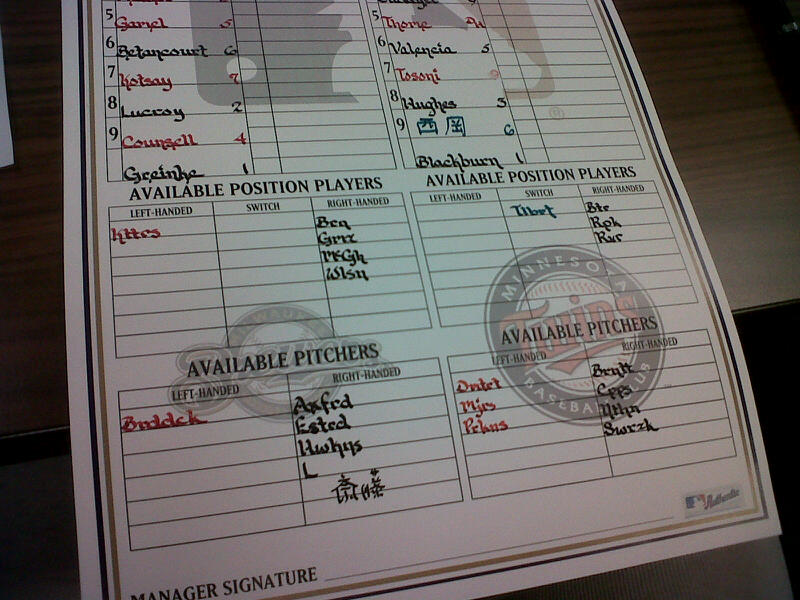 5 Gamel 3
6 Betancourt 6
7 Kotsay 7
8 Lucroy 2
9 Counsell 4
Greinke 1
5 Thome
6 Valencia 5
7 Tosoni 9
8 Hughes 3
9 西岡 6
Blackburn 1
AVAILABLE POSITION PLAYERS
LEFT-HANDED SWITCH RIGHT-HANDED
Kttes Bcn
Grrz
McGh
Wlsn
AVAILABLE POSITION PLAYERS
LEFT-HANDED SWITCH RIGHT-HANDED
Tlbrt Btr
Rvr
MINNESOTA
Twins
BASEBALL CLUB
AVAILABLE PITCHERS
LEFT-HANDED RIGHT-HANDED
Bddck Axfrd
Estrd
Hwkns
L
斎藤
AVAILABLE PITCHERS
LEFT-HANDED RIGHT-HANDED
Mjrs
Prkns
Cpps
Nthn
Swrzk
Authentic
MANAGER SIGNATURE